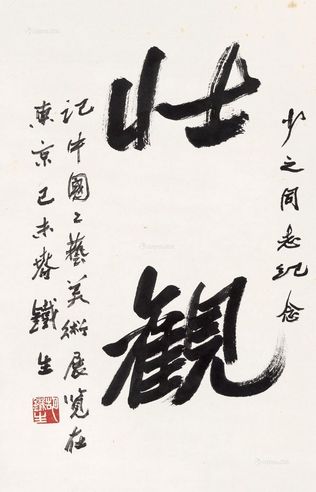 少之同志纪念
壮觀
记中國工藝美術展览在
東京己未春鐵生
胡鐵生